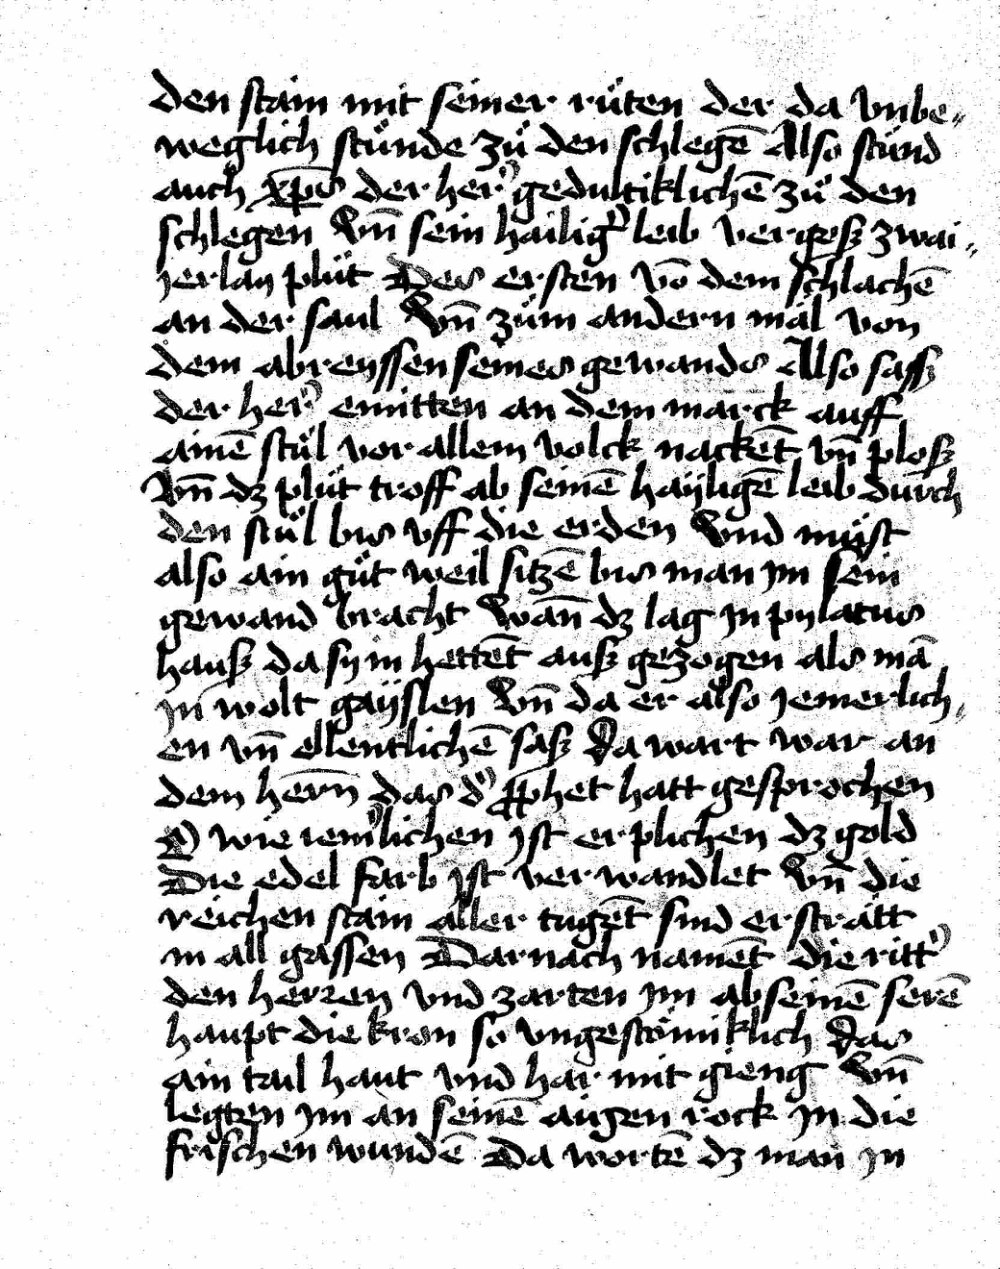 den stain mit seiner růten der da vnbe„
weglich stůnde zů den schlegē Also stůnd
auch xp̄s der her᷑ gedultiklichē zů den
schlegen Vn̄ sein hailig᷑ leib vergosz zwai„
jerlay plůt Des ersten vō dem schlachē
an der saul Vn̄ zům andern mál von
dem abreyssen seines gewands Also sasz
der her᷑ emitten an dem marck auff
ainē stůl vor allem volck nackēt vn̄ plosz
Vn̄ dz plůt troff ab seinē haÿligē leib durch
den stůl bis vff die erden Vnd můst
also ain gůt weil sitzē bis man im sein
gewand bracht Wan̄ dz lag in pylatus
hausz da sy in hettēt ausz gezogen als mā
in̄ wolt gaÿslen Vn̄ da er also jemerlich„
en vn̄ ellentlichē sasz Da wart war an
dem hern̄ das d᷑ ꝓphet hatt gesprochen
O wie iem᷑lichen jst erplichen dz gold
Die edel farb jst verwandlet Vn̄ die
reichen stain aller tugēt sind ersträtt
in all gassen Darnach namēt die ritt᷑
den herren vnd zarten im ab seinē serē
haupt die kron so vngestömiklich Das
ain tail haut vnd har mit gieng Vn̄
legten im an seinē aigen rock in die
frischen wundē Da wortē dz man in